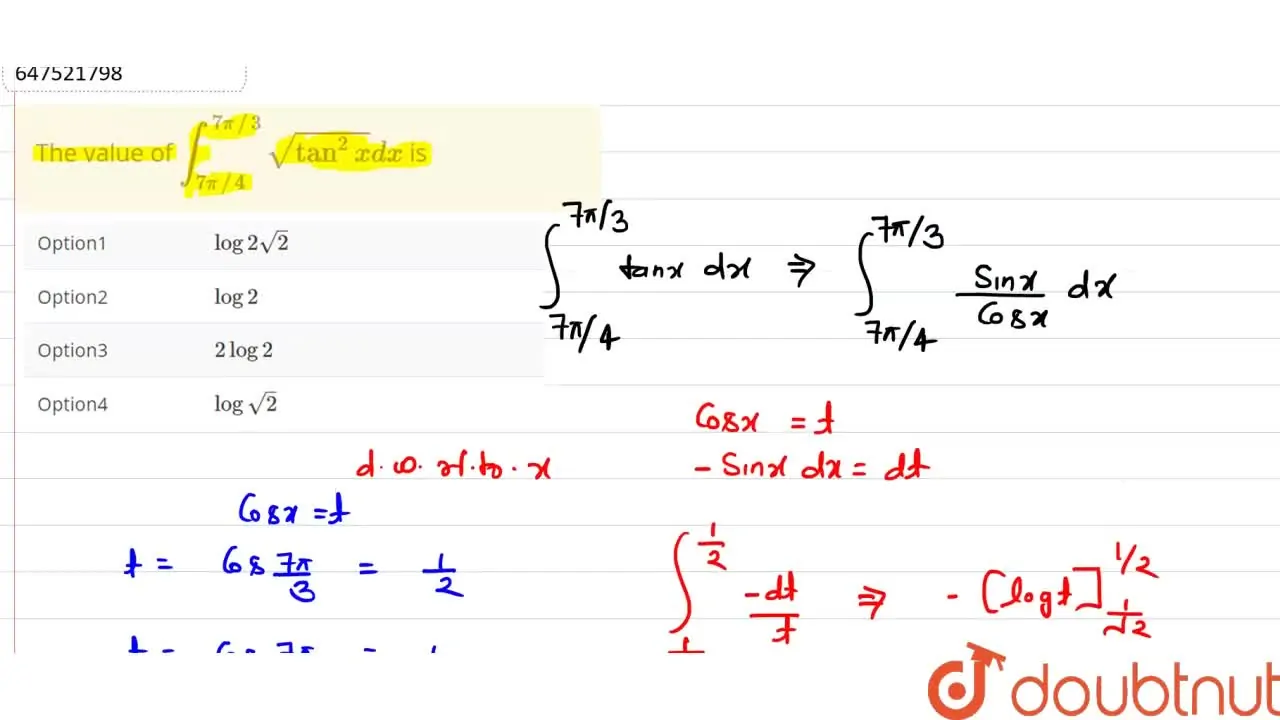 647521798
The value of ∫_{7π/4}^{7π/3} √(tan² x) dx is
Option1 log 2√2
Option2 log 2
Option3 2 log 2
Option4 log √2
∫_{7π/4}^{7π/3} tanx dx ⇒ ∫_{7π/4}^{7π/3} Sinx/Cosx dx
Cosx = t
d.w.r.to.x - Sinx dx = dt
Cosx = t
t = Cos 7π/3 = 1/2
∫^{1/2} -dt/t ⇒ - [logt]_{1/√2}^{1/2}
doubtnut